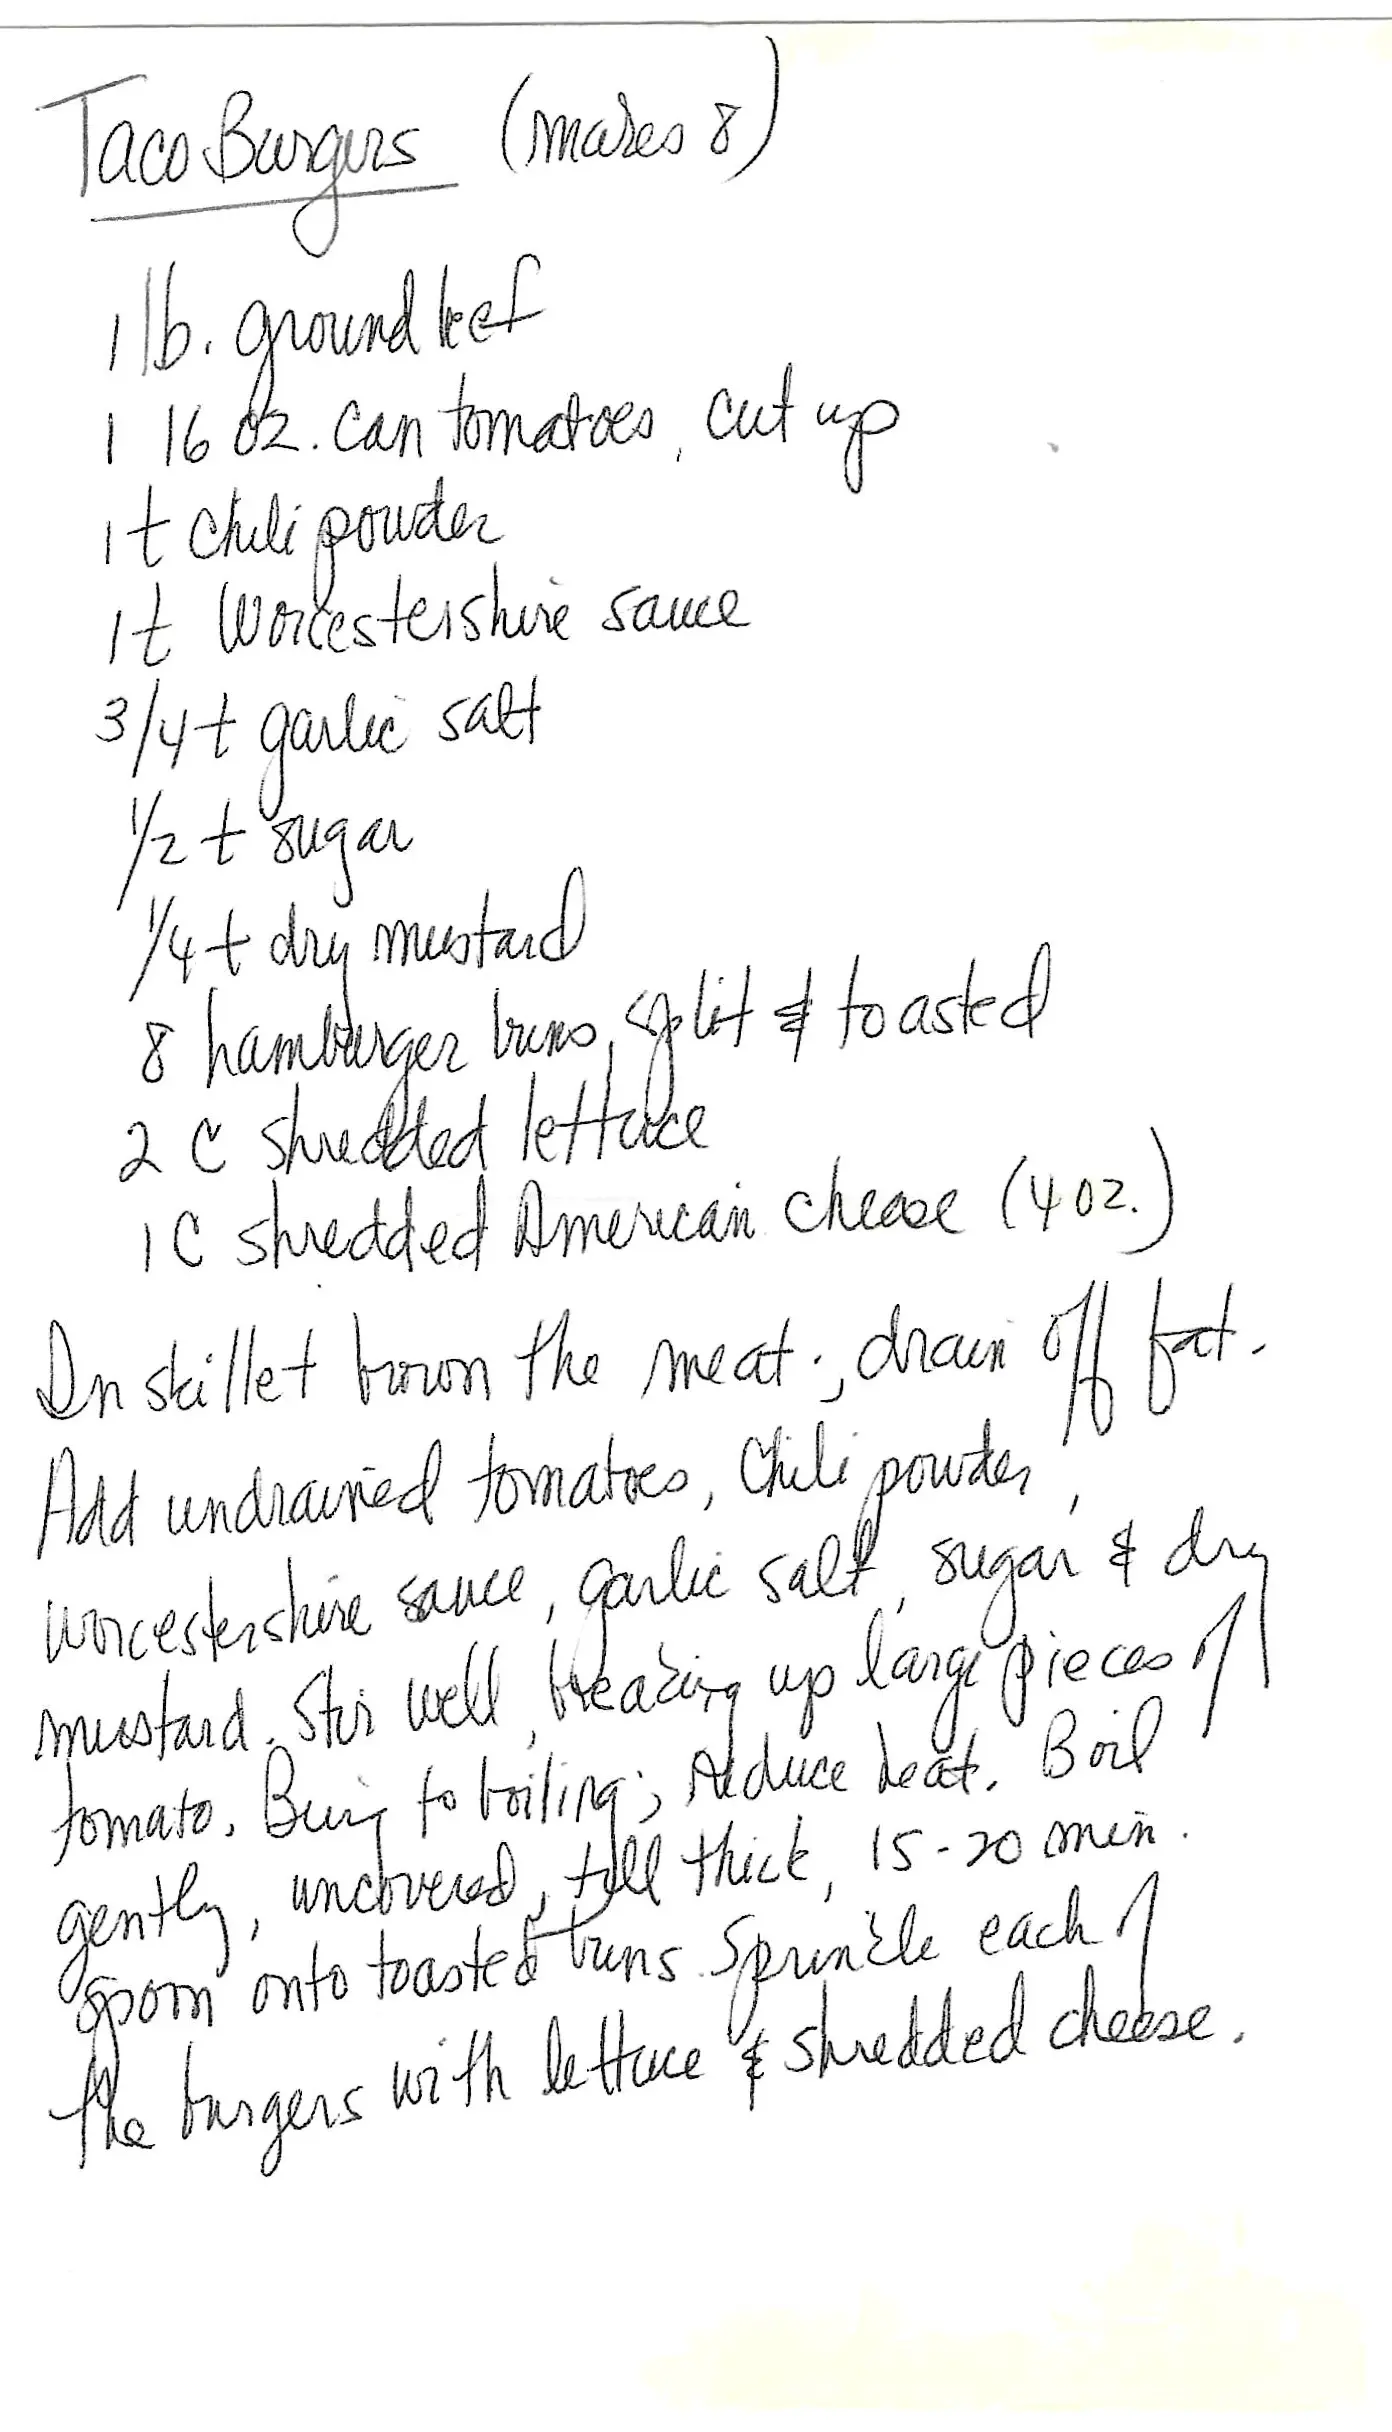 Taco Burgers (makes 8)
1 lb. ground beef
1 16 oz. can tomatoes, cut up
1 t chili powder
1 t Worcestershire sauce
3/4 t garlic salt
1/2 t sugar
1/4 t dry mustard
8 hamburger buns, split & toasted
2 C shredded lettuce
1 C shredded American cheese (4 oz.)
In skillet brown the meat; drain off fat.
Add undrained tomatoes, chili powder,
worcestershire sauce, garlic salt, sugar & dry
mustard. Stir well, breaking up large pieces of
tomato. Bring to boiling; reduce heat. Boil
gently, uncovered, till thick, 15-20 min.
Spoon onto toasted buns. Sprinkle each of
the burgers with lettuce & shredded cheese.